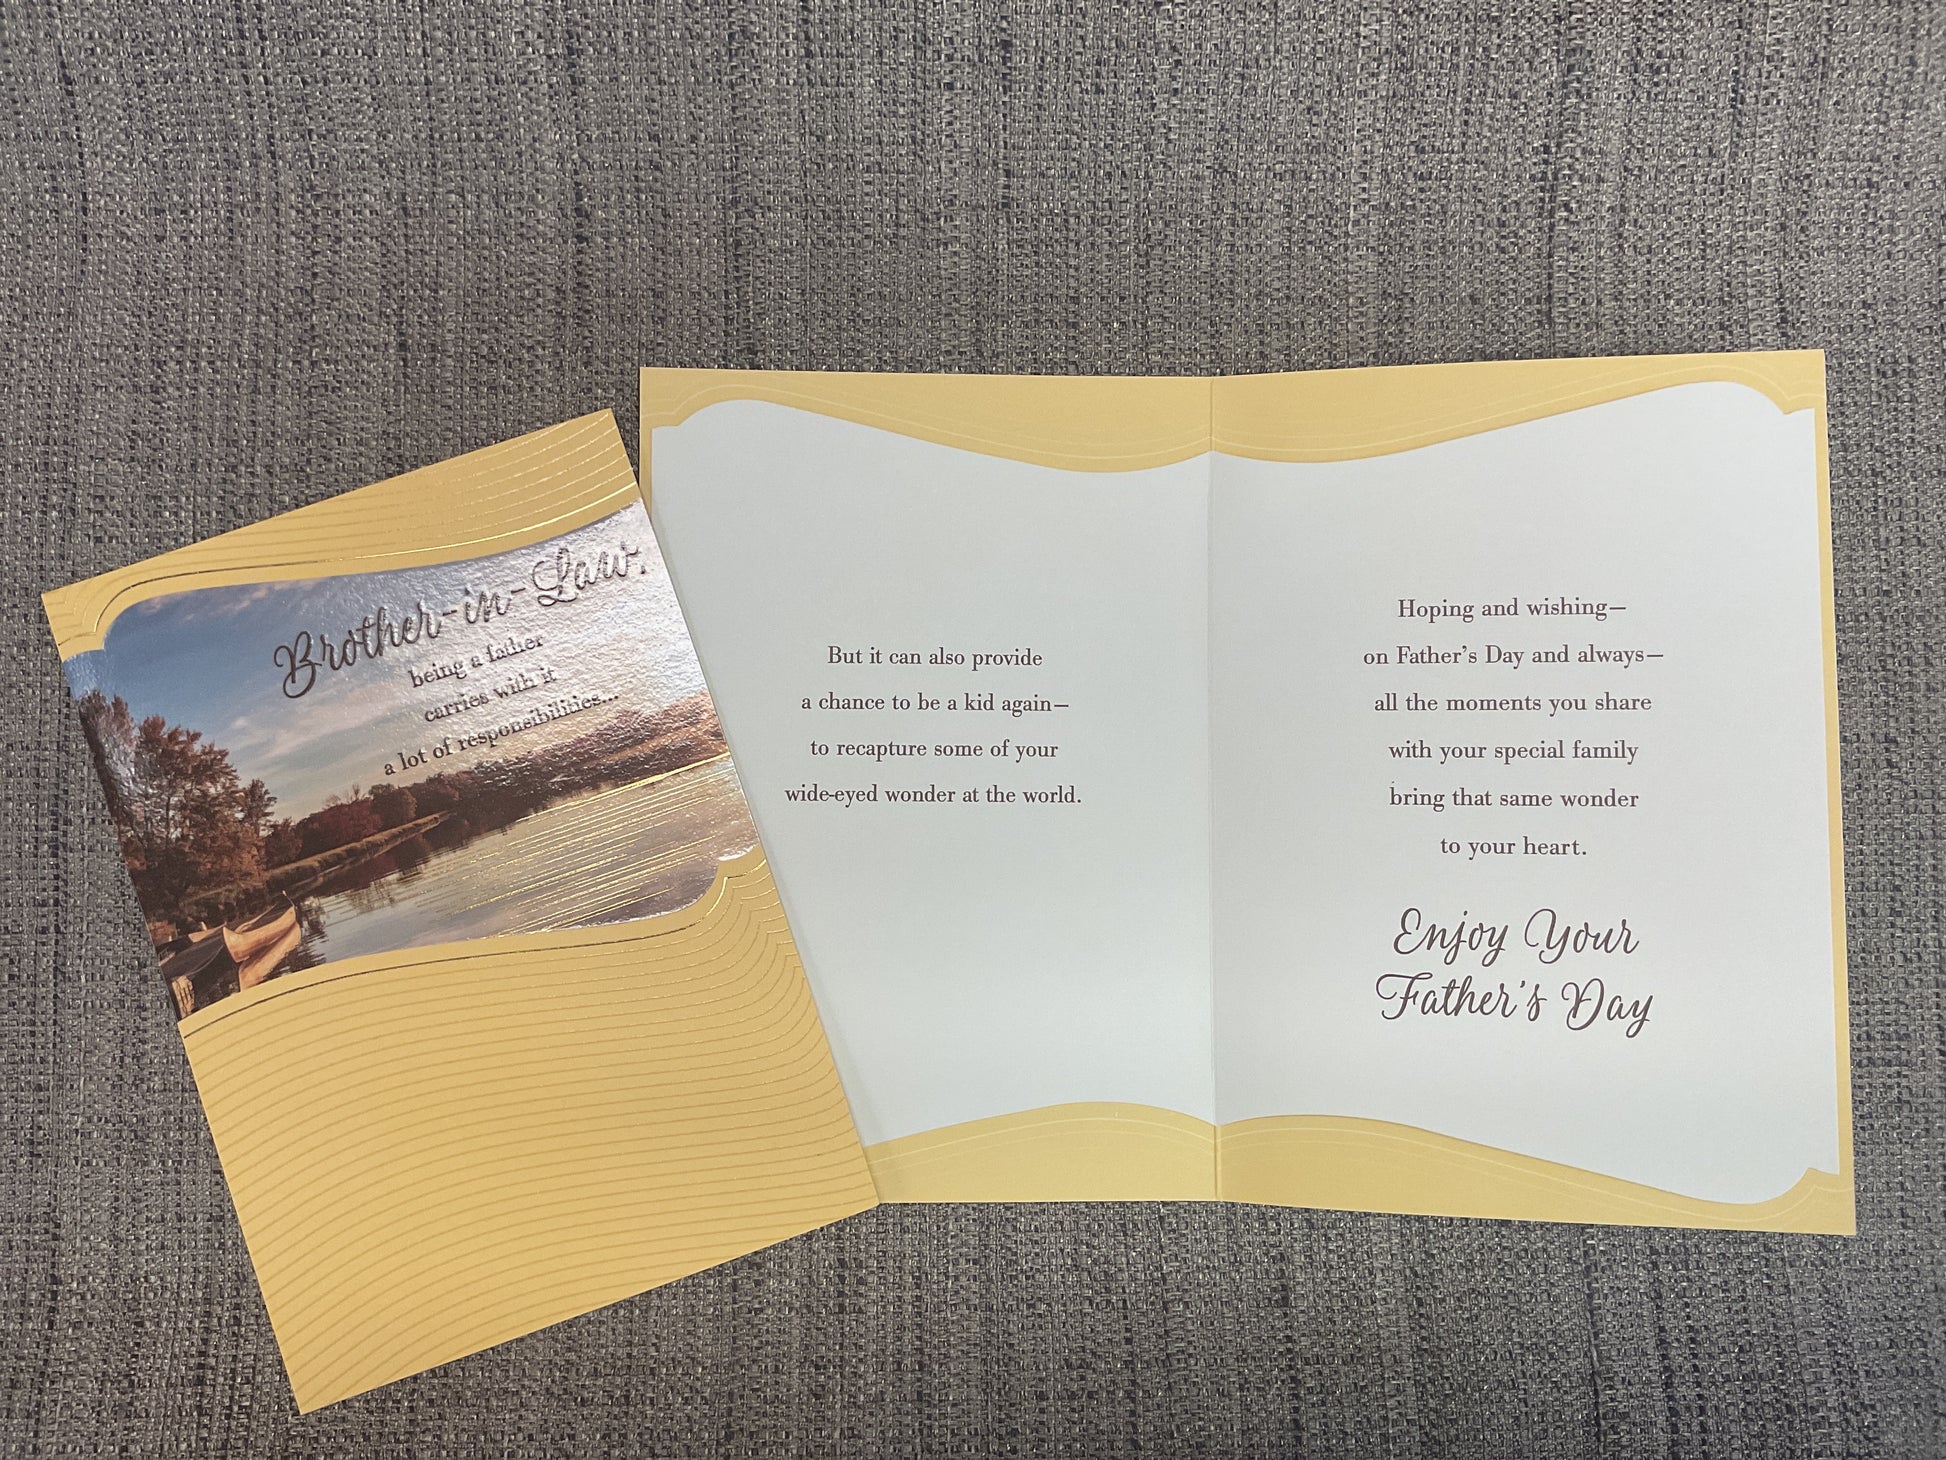 Brother-in-Law,
being a father
carries with it
a lot of responsibilities...
But it can also provide
a chance to be a kid again—
to recapture some of your
wide-eyed wonder at the world.
Hoping and wishing—
on Father's Day and always—
all the moments you share
with your special family
bring that same wonder
to your heart.
Enjoy Your
Father's Day